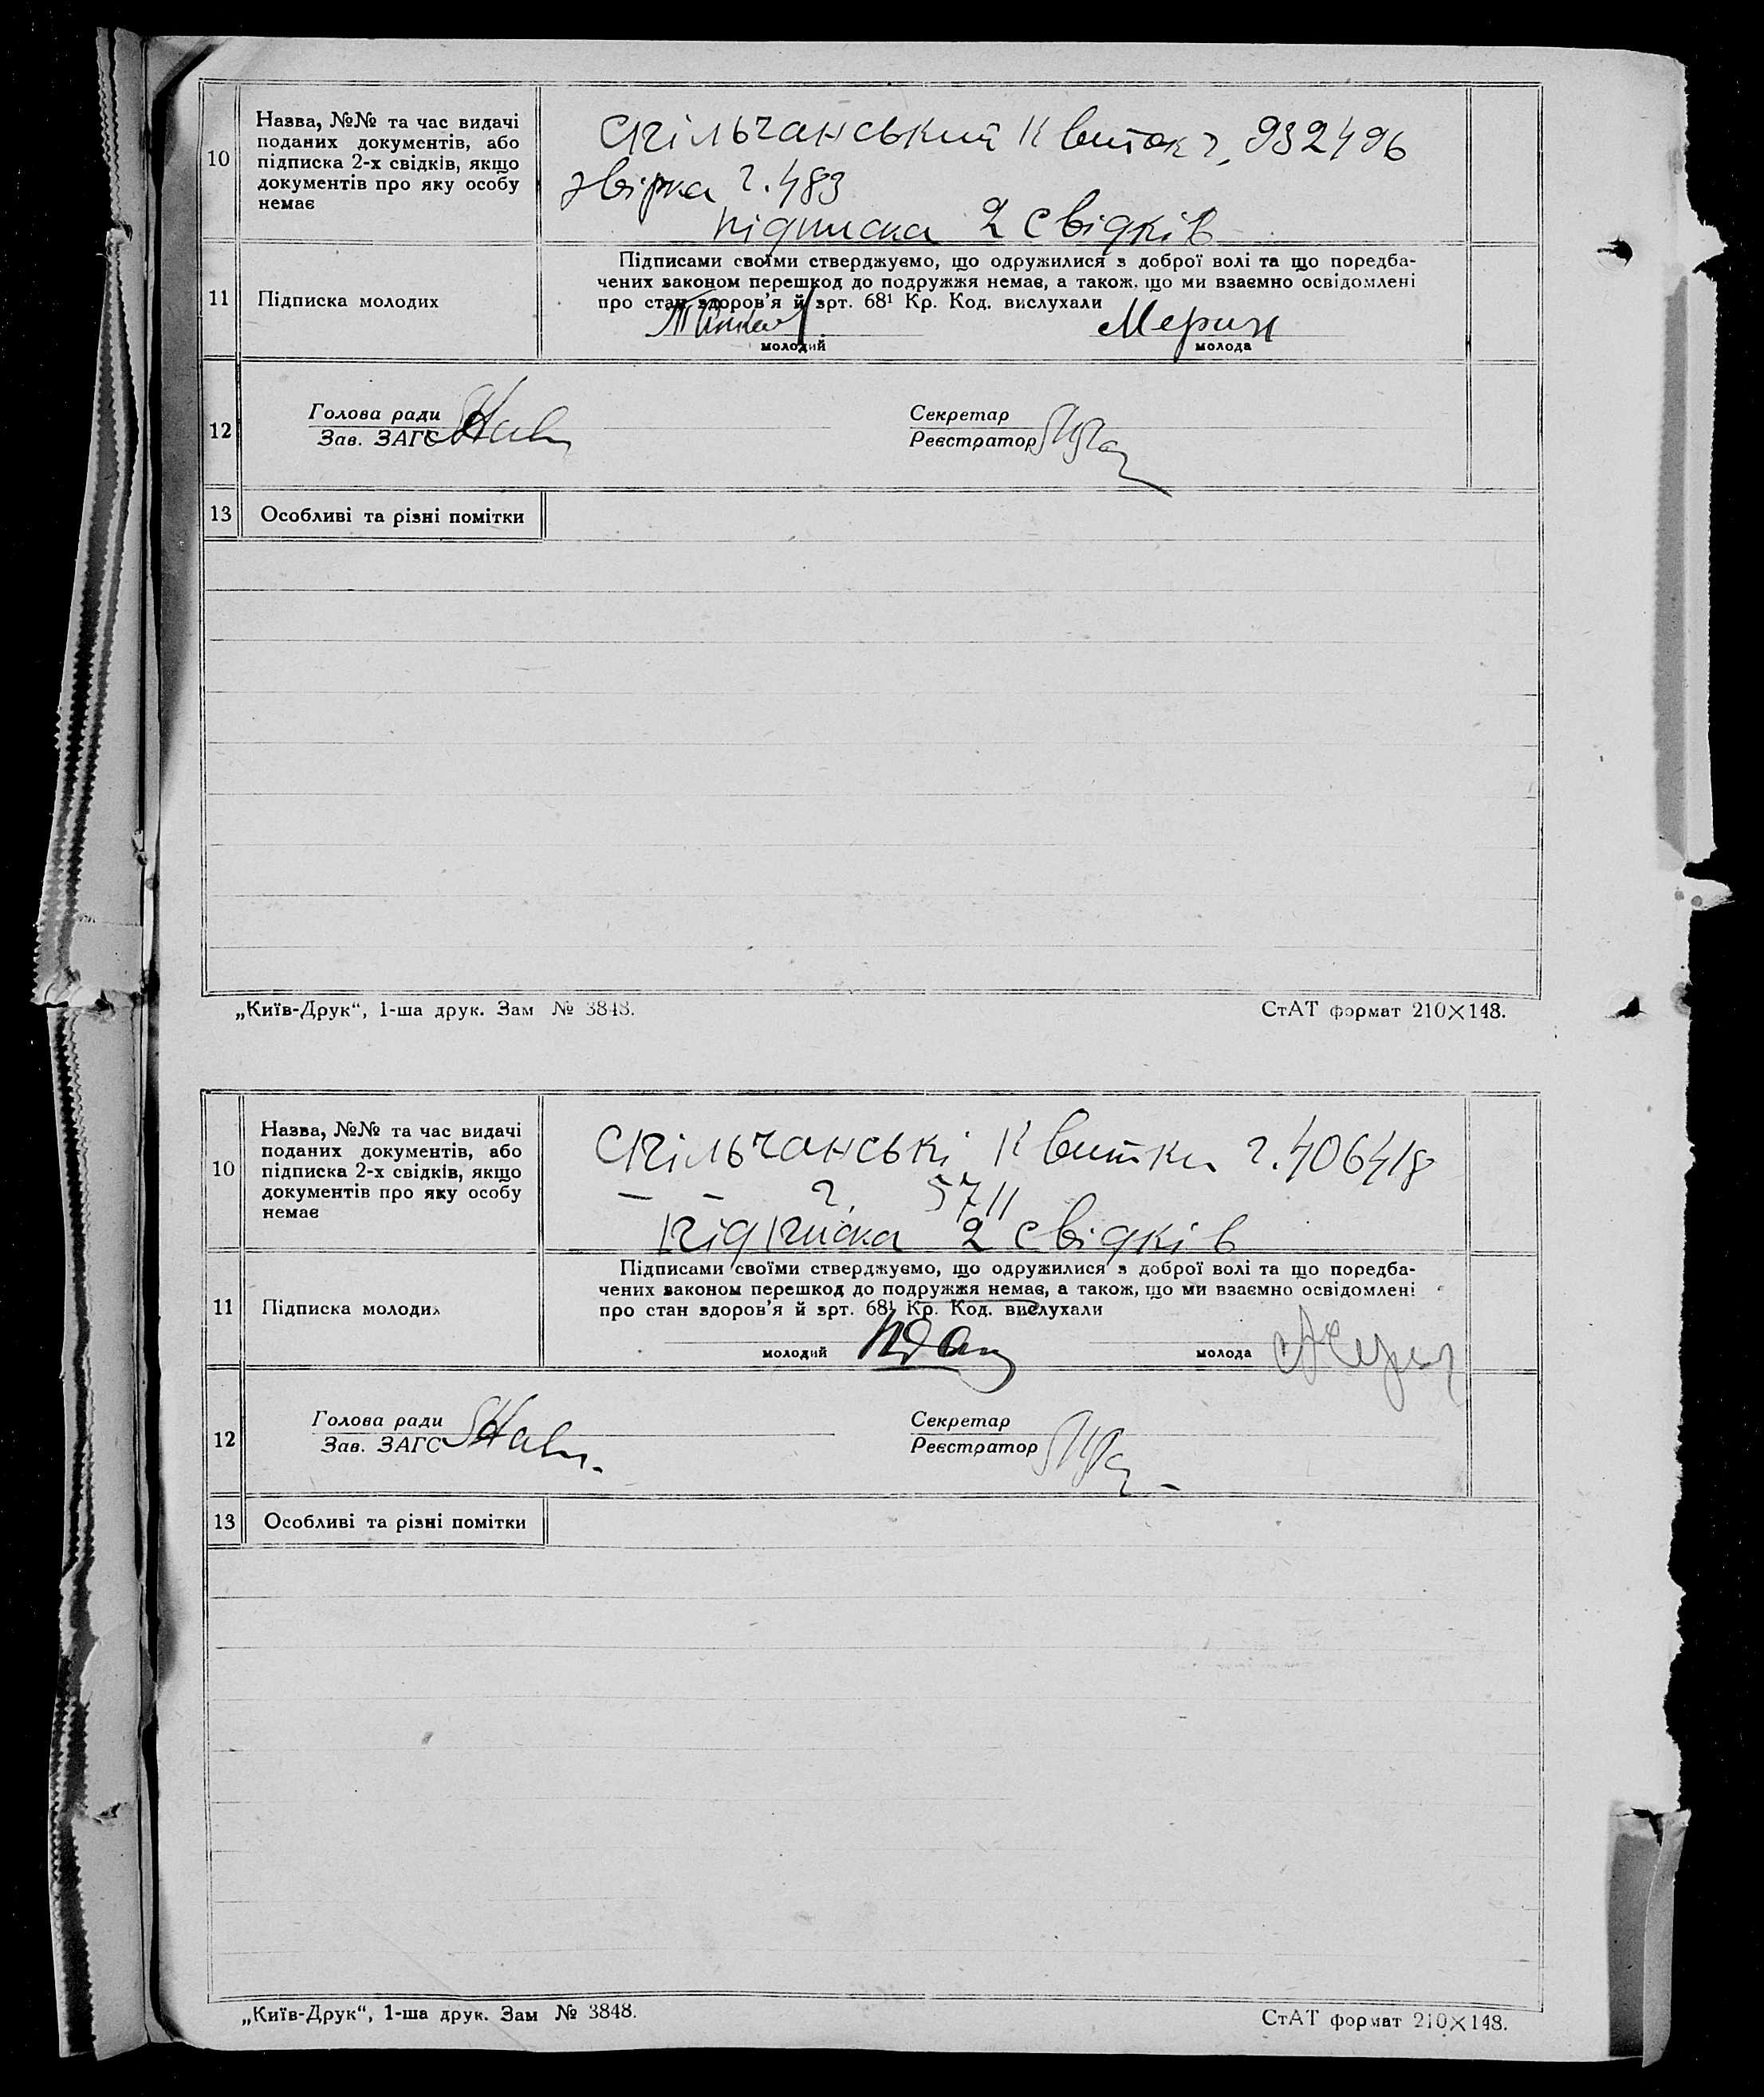 10
Назва, №№ та час видачі
поданих документів, або
підписка 2-х свідків, якщо
документів про яку особу
немає
Спільчанський квиток ч. 932496
звірка ч. 483
підписка 2 свідків
11
Підписка молодих
Підписами своїми стверджуємо, що одружилися з доброї волі та що поредба-
чених законом перешкод до подружжя немає, а також, що ми взаємно освідомлені
про стан здоров'я й врт. 68¹ Кр. Код. вислухали
Мерин
молодий
молода
12
Голова ради
Зав. ЗАГС
Секретар
Реєстратор
13
Особливі та різні помітки
„Київ-Друк“, 1-ша друк. Зам № 3848.
СтАТ формат 210×148.
10
Назва, №№ та час видачі
поданих документів, або
підписка 2-х свідків, якщо
документів про яку особу
немає
Спільчанські квитки ч. 406418
— — ч. 5711
підписка 2 свідків
11
Підписка молодих
Підписами своїми стверджуємо, що одружилися з доброї волі та що поредба-
чених законом перешкод до подружжя немає, а також, що ми взаємно освідомлені
про стан здоров'я й врт. 68¹ Кр. Код. вислухали
молодий
молода
12
Голова ради
Зав. ЗАГС
Секретар
Реєстратор
13
Особливі та різні помітки
„Київ-Друк“, 1-ша друк. Зам № 3848.
СтАТ формат 210×148.